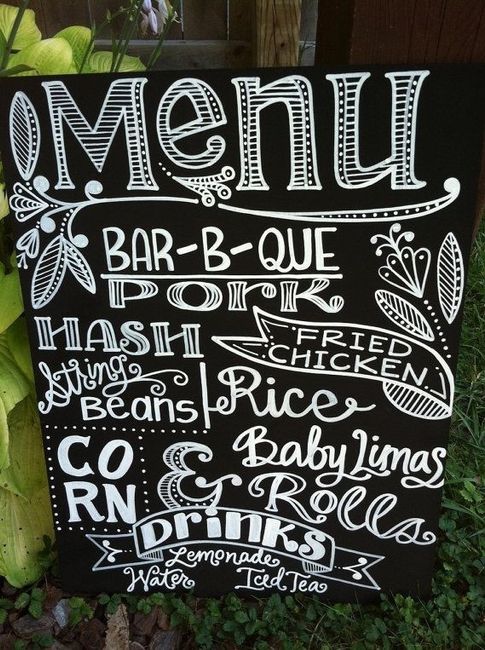 Menu
BAR-B-QUE
PORK
HASH
FRIED
CHICKEN
String
BEANS
Rice
CO
RN
Baby Limas
& Rolls
DRINKS
Lemonade
Water Iced Tea